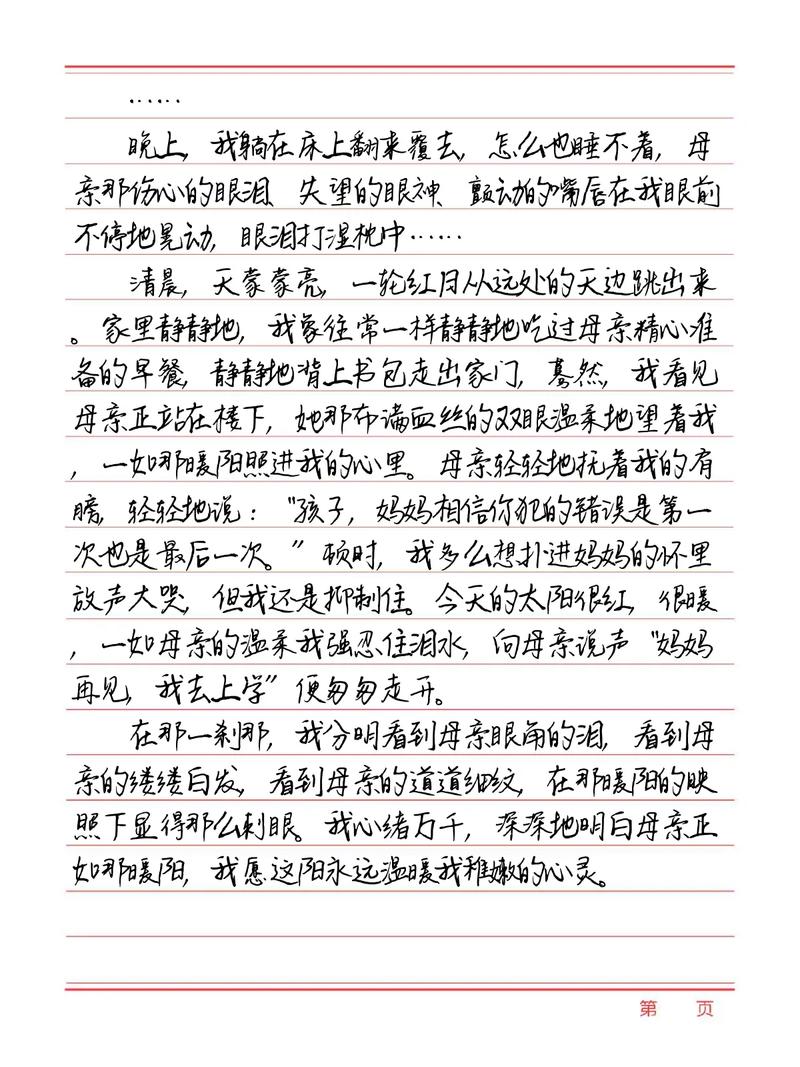 ……
晚上，我躺在床上翻来覆去，怎么也睡不着，母
亲那伤心的眼泪、失望的眼神、颤动的嘴唇在我眼前
不停地晃动，眼泪打湿枕巾……
清晨，天蒙蒙亮，一轮红日从远处的天边跳出来
。家里静静地，我象往常一样静静地吃过母亲精心准
备的早餐，静静地背上书包走出家门，蓦然，我看见
母亲正站在楼下，她那布满血丝的双眼温柔地望着我
，一如那暖阳照进我的心里。母亲轻轻地抚着我的肩
膀，轻轻地说：“孩子，妈妈相信你犯的错误是第一
次也是最后一次。”顿时，我多么想扑进妈妈的怀里
放声大哭，但我还是抑制住。今天的太阳很红，很暖
，一如母亲的温柔我强忍住泪水，向母亲说声“妈妈
再见，我去上学”便匆匆走开。
在那一刹那，我分明看到母亲眼角的泪，看到母
亲的缕缕白发，看到母亲的道道细纹，在那暖阳的映
照下显得那么刺眼。我心绪万千，深深地明白母亲正
如那暖阳，我愿这阳永远温暖我稚嫩的心灵。
第 页